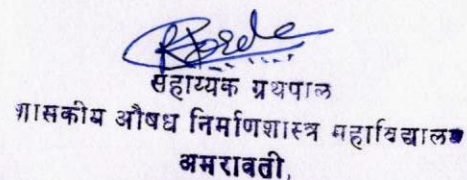 सहाय्यक ग्रंथपाल
शासकीय औषध निर्माणशास्त्र महाविद्यालय
अमरावती.